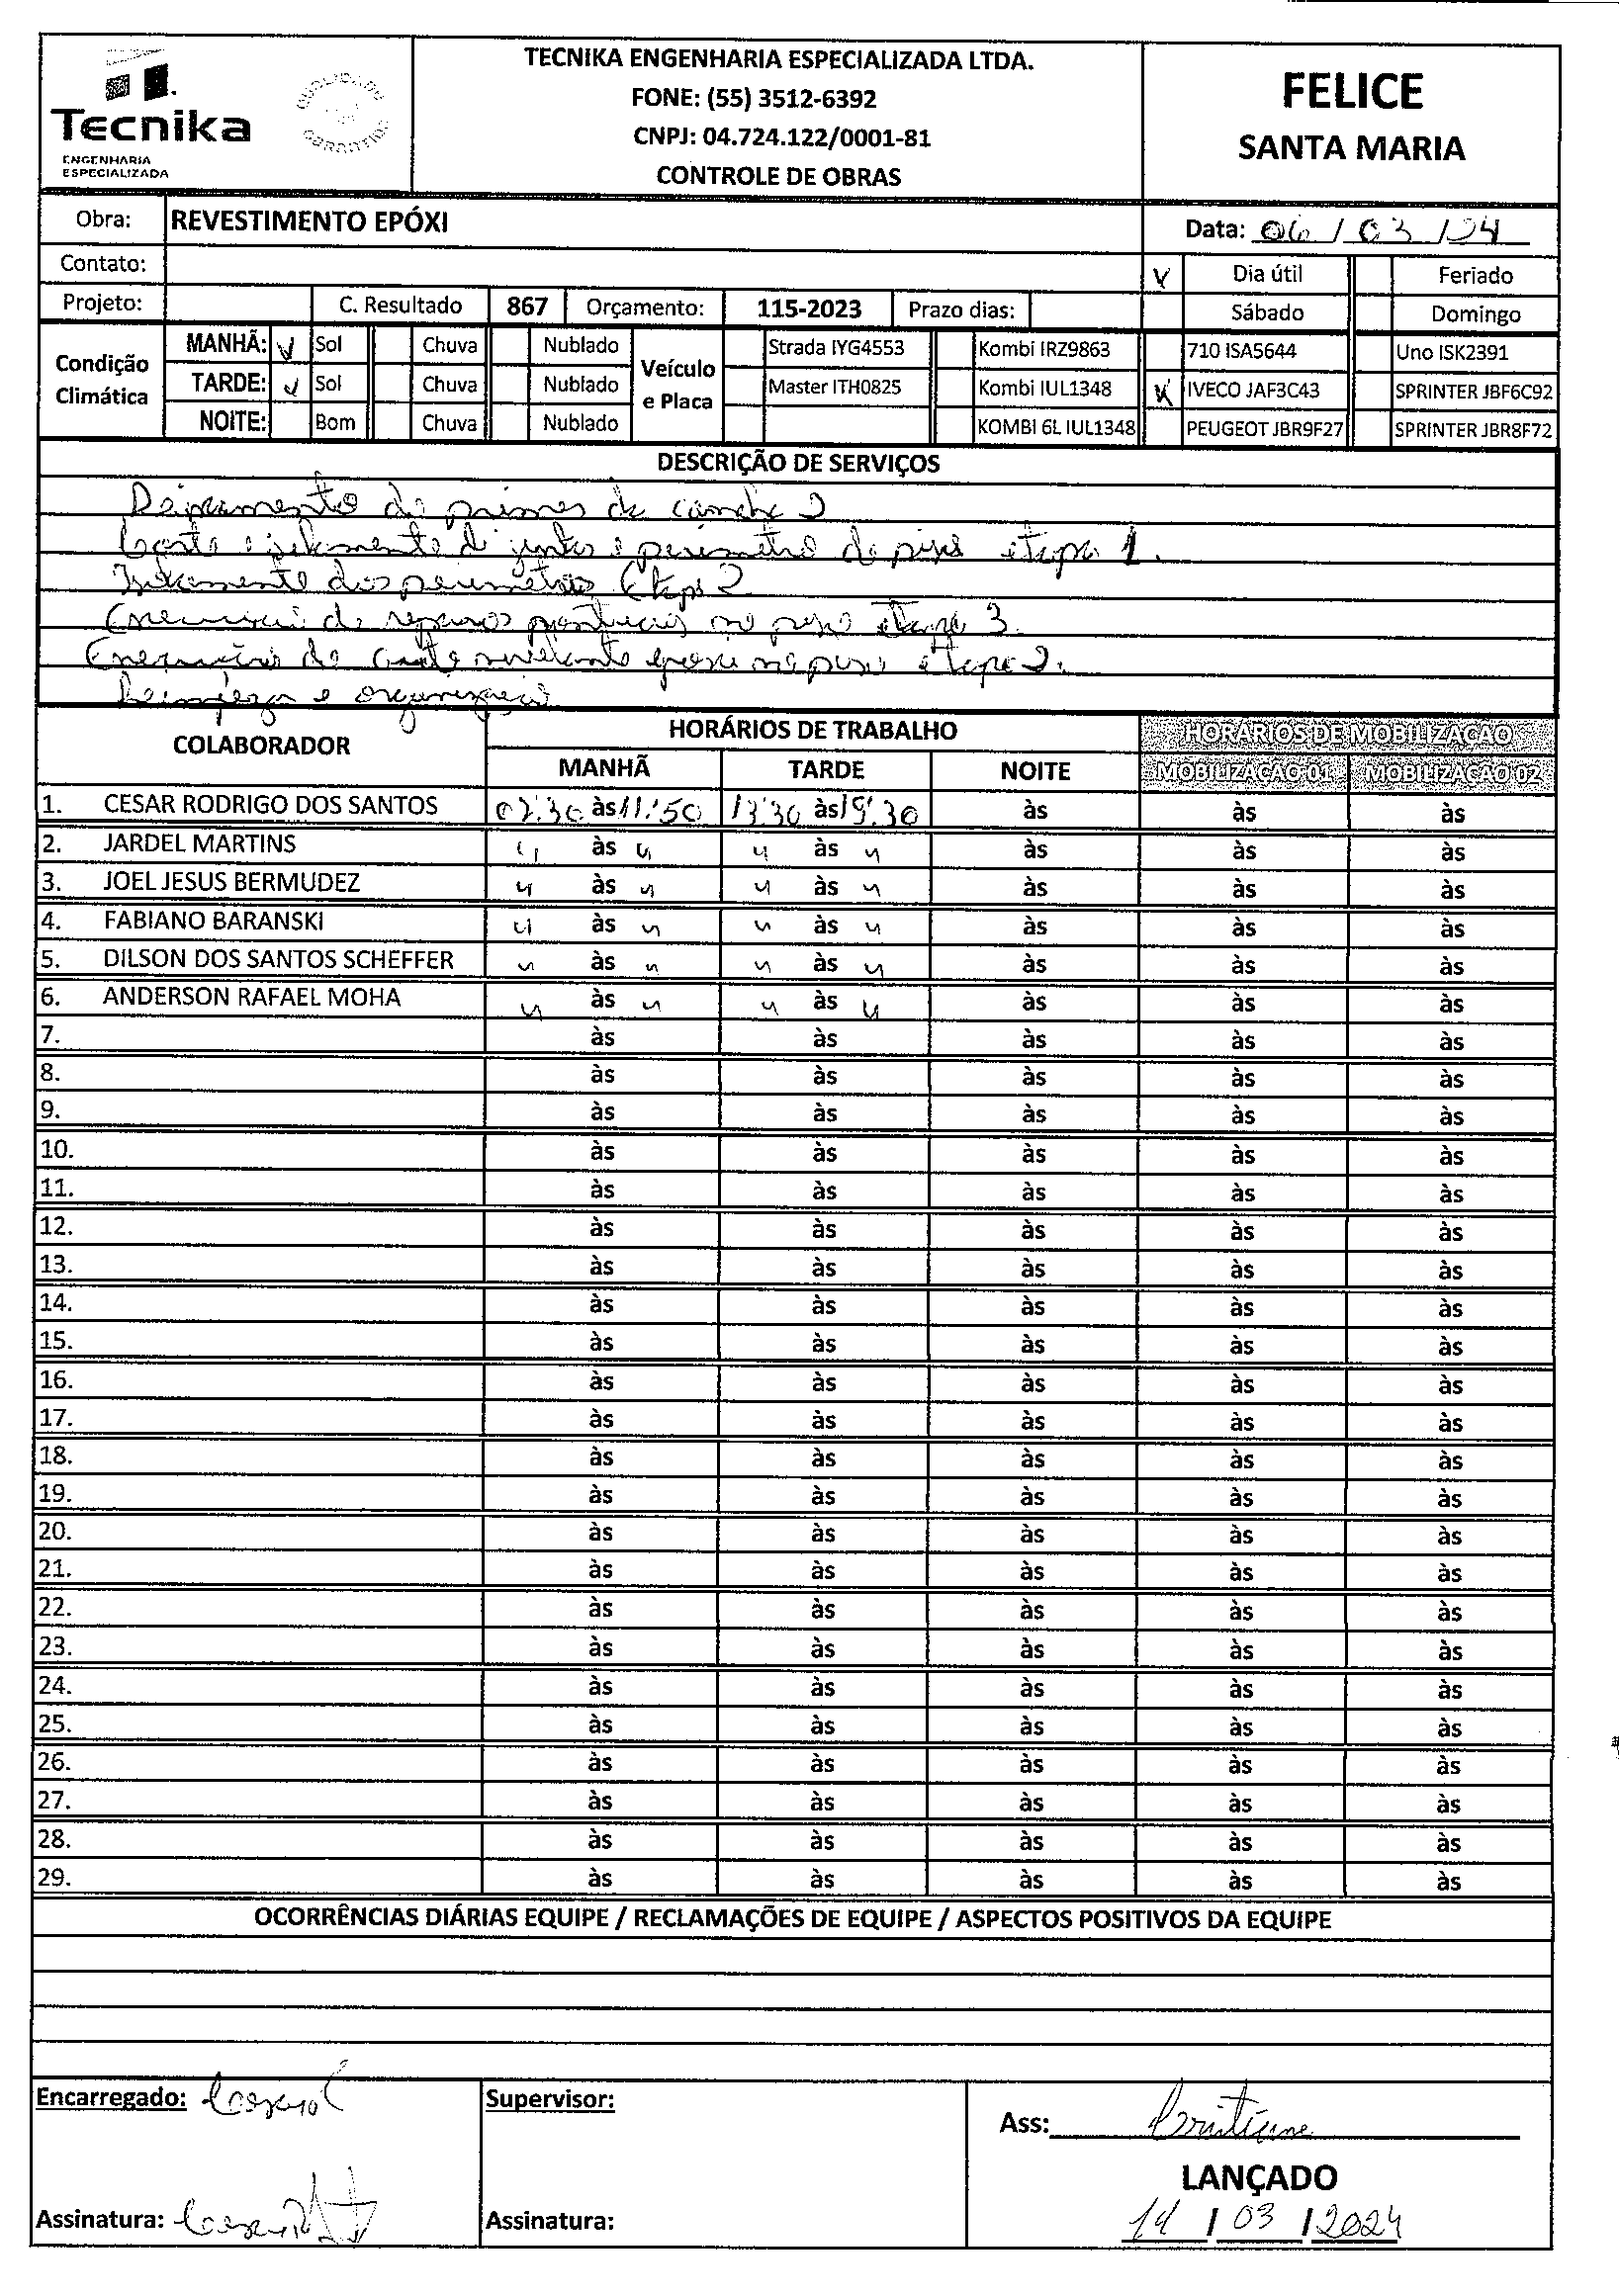 Tecnika
ENGENHARIA
ESPECIALIZADA
TECNIKA ENGENHARIA ESPECIALIZADA LTDA.
FONE: (55) 3512-6392
CNPJ: 04.724.122/0001-81
CONTROLE DE OBRAS
FELICE
SANTA MARIA
Obra: REVESTIMENTO EPÓXI
Data: 06 / 03 / 24
Contato:
Dia útil Feriado
Projeto: C. Resultado 867 Orçamento: 115-2023 Prazo dias:
Sábado Domingo
Condição Climática
MANHÃ: Sol Chuva Nublado
TARDE: Sol Chuva Nublado
NOITE: Bom Chuva Nublado
Veículo e Placa
Strada IYG4553 Kombi IRZ9863 710 ISA5644 Uno ISK2391
Master ITH0825 Kombi IUL1348 IVECO JAF3C43 SPRINTER JBF6C92
KOMBI 6L IUL1348 PEUGEOT JBR9F27 SPRINTER JBR8F72
DESCRIÇÃO DE SERVIÇOS
de
Corte e de juntas e perimetro do piso etapa 1.
dos perimetros Etapa 2
Execução de reparos no piso etapa 3.
Execução de epoxi no piso etapa 2.
Limpeza e organização
COLABORADOR HORÁRIOS DE TRABALHO HORÁRIOS DE MOBILIZAÇÃO
MANHÃ TARDE NOITE MOBILIZAÇÃO 01 MOBILIZAÇÃO 02
1. CESAR RODRIGO DOS SANTOS 07:30 às 11:50 13:30 às 19:30 às às às
2. JARDEL MARTINS " às " " às " às às às
3. JOEL JESUS BERMUDEZ " às " " às " às às às
4. FABIANO BARANSKI " às " " às " às às às
5. DILSON DOS SANTOS SCHEFFER " às " " às " às às às
6. ANDERSON RAFAEL MOHA " às " " às " às às às
7. às às às às às
8. às às às às às
9. às às às às às
10. às às às às às
11. às às às às às
12. às às às às às
13. às às às às às
14. às às às às às
15. às às às às às
16. às às às às às
17. às às às às às
18. às às às às às
19. às às às às às
20. às às às às às
21. às às às às às
22. às às às às às
23. às às às às às
24. às às às às às
25. às às às às às
26. às às às às às
27. às às às às às
28. às às às às às
29. às às às às às
OCORRÊNCIAS DIÁRIAS EQUIPE / RECLAMAÇÕES DE EQUIPE / ASPECTOS POSITIVOS DA EQUIPE
Encarregado:
Supervisor:
Ass: Cristiane
LANÇADO
Assinatura:
Assinatura:
14 / 03 / 2024